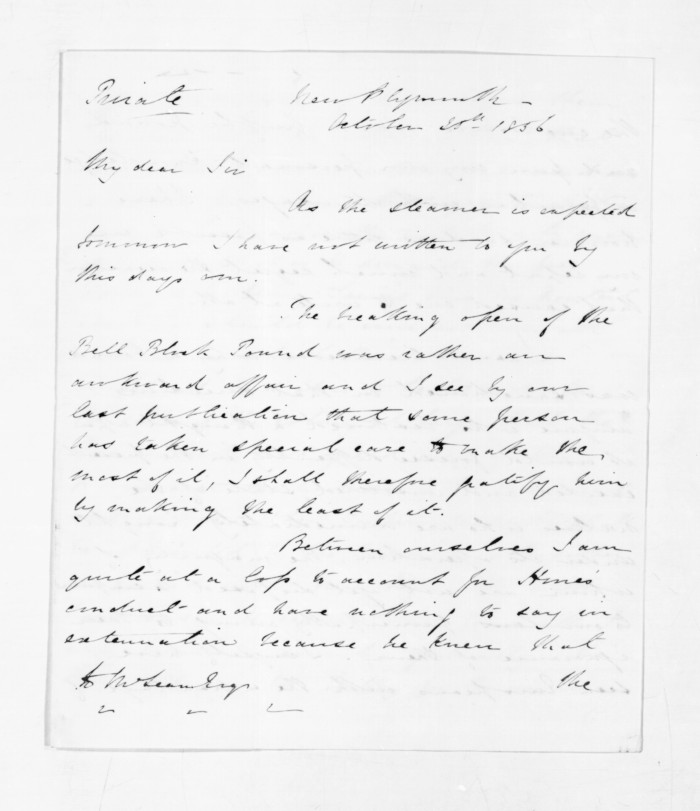 Private New Plymouth -
October 30th 1856
My dear Sir
As the steamer is expected
tommorow I have not written to you by
this days
The breaking open of the
Bell Block Pound was rather an
awkward affair and I see by our
last publication that some person
has taken special care to make the
most of it, I shall therefore gratify him
by making the least of it.
Between ourselves I am
quite at a loss to account for Hone's
conduct and have nothing to say in
extenuation because he knew that
to McLean Esqr the